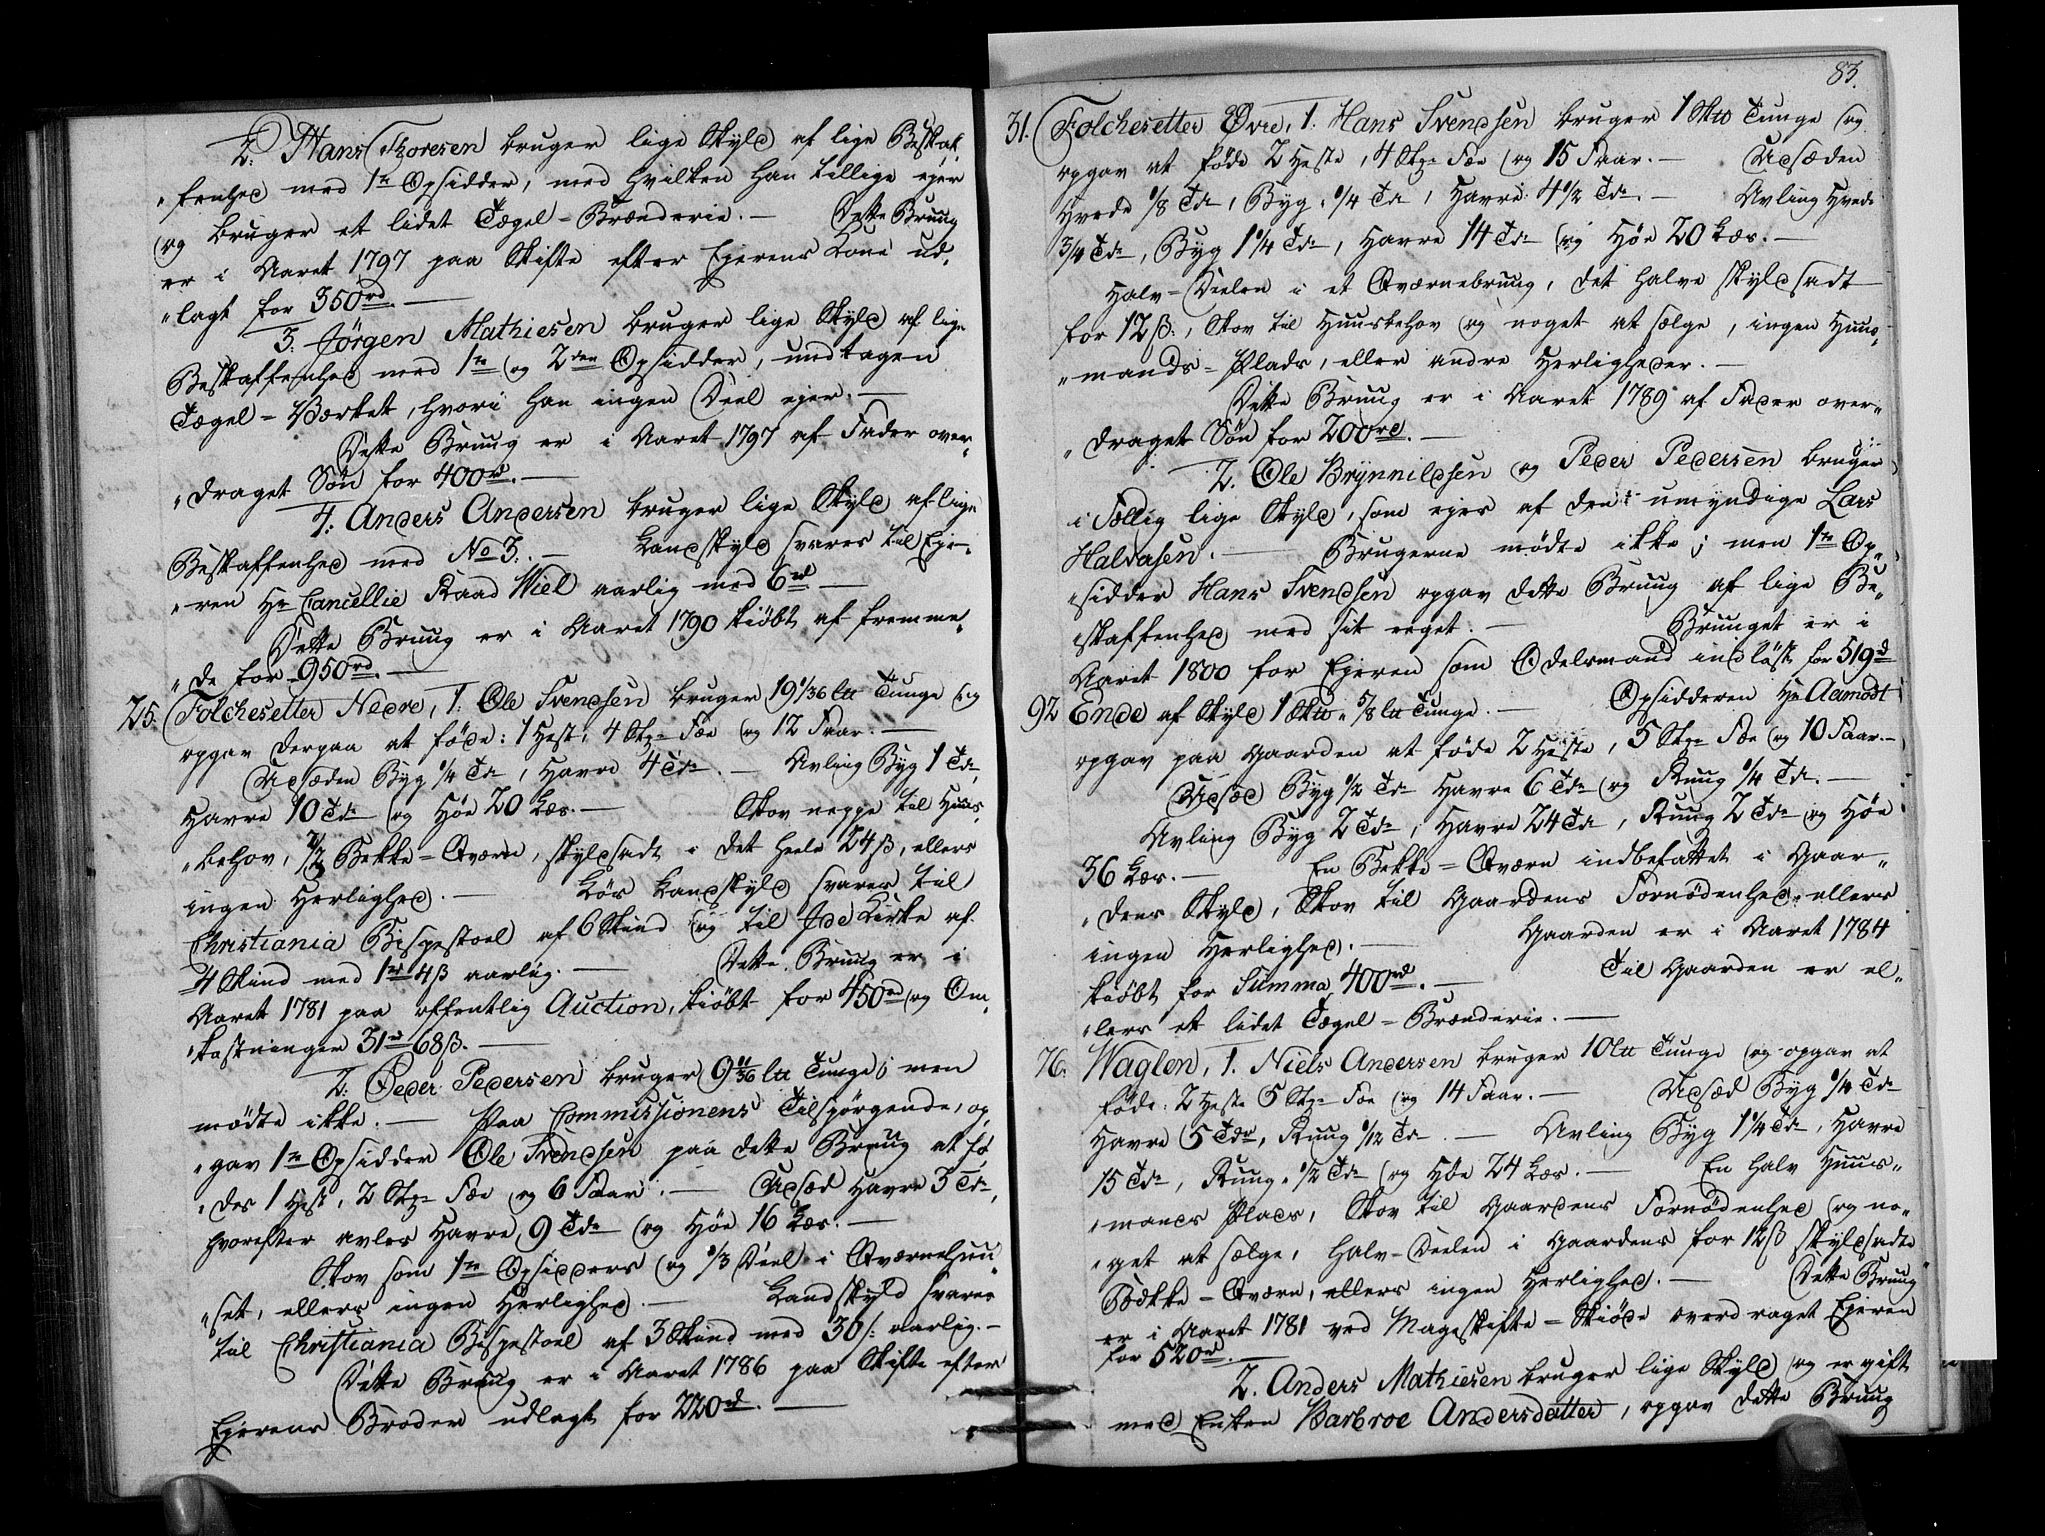 2. Hans Thoresen bruger lige Skyld af lige Beskaf„
„fenhed med 1te Opsidder, med hvilken han tillige ejer
og bruger et lidet Tægel-Brænderie. — Dette Bruug
er i Aaret 1797 paa Skifte efter Ejerens Kone ud„
„lagt for 350rd. —
3. Jörgen Mathiesen bruger lige Skyld af lige
Beskaffenhed med 1te og 2den Opsidder, undtagen
Tægel-Værket, hvori han ingen Deel ejer. —
Dette Bruug er i Aaret 1797 af Fader over„
„draget Søn for 400rd. —
4. Anders Andersen bruger lige Skyld af lige
Beskaffenhed med No 3. — Landskyld svares til Eje„
„ren Hr Cancellie Raad Wiel aarlig med 6rd —
Dette Bruug er i Aaret 1790 kiöbt af fremme„
„de for 950rd. —
25. Folchesetter Nedre, 1. Ole Svendsen bruger 19 1/36 ltt Tunge og
opgav derpaa at føde: 1 Hest, 4 Stkr Fæ og 12 Faar. —
Udsæden Byg 1/4 Tde, Havre 4 Tdr. — Avling Byg 1 Tde,
Havre 10 Tdr og Høe 20 Læs. — Skov neppe til Huus„
„behov, 1/2 Bekke-Qværn, skyldsadt i det heele 24ß, ellers
ingen Herlighed. — Løs Landskyld svares til
Christiania Bispestoel af 6 Skind og til Idd Kirke af
4 Skind med 1rd 4ß aarlig. — Dette Bruug er i
Aaret 1781 paa offentlig Auction, kiöbt for 450rd og Om„
„kostninger 31rd 68ß. —
2. Peder Pedersen bruger 9 11/36 ltt Tunge; men
mødte ikke. — Paa Commissionens Tilspörgende, op„
„gav 1te Opsidder Ole Svendsen paa dette Bruug at fö„
„des 1 Hest, 2 Stkr Fæ og 6 Faar. — Udsæd Havre 3 Tdr,
hvorefter avles Havre 9 Tdr og Høe 16 Læs. —
Skov som 1te Opsidders og 1/3 Deel i Qværnehuu„
„set, ellers ingen Herlighed. — Landskyld svares
til Christiania Bispestoel af 3 Skind med 30ß. aarlig. —
Dette Bruug er i Aaret 1786 paa Skifte efter
Ejerens Broder udlagt for 220rd. —
83.
31. Folchesetter Øvre, 1. Hans Svendsen bruger 1 Sktt Tunge og
opgav at føde 2 Heste, 4 Stkr Fæ og 15 Faar. — Udsæden
Hvede 1/8 Tde, Byg 1/4 Tde, Havre 4 1/2 Tdr. — Avling Hvede
3/4 Tdr, Byg 1 1/4 Tdr, Havre 14 Tdr og Høe 20 Læs. —
Halv-Deelen i et Qværnebruug, det halve skyldsadt
for 12ß., Skov til Huusbehov og noget at sælge, ingen Huus„
„mands-Plads, eller andre Herligheder. —
Dette Bruug er i Aaret 1789 af Fader over„
„draget Søn for 200rd. —
2. Ole Brynnildsen og Peder Pedersen bruger
i Fællig lige Skyld, som ejes af den umyndige Lars
Halvasen. — Brugerne mødte ikke; men 1te Op„
„sidder Hans Svendsen opgav dette Bruug af lige Be„
„skaffenhed med sit eeget. — Bruuget er i
Aaret 1800 for Ejeren som Odelsmand indløst for 519rd
92 Ende af Skyld 1 Sktt 5/8 ltt Tunge. — Opsidderen Hr Aamodt
opgav paa Gaarden at føde 2 Heste, 5 Stkr Fæ og 10 Faar. —
Udsæd Byg 1/2 Tde Havre 6 Tdr og Ruug 1/4 Tde. —
Avling Byg 2 Tdr, Havre 24 Tdr, Ruug 2 Tdr og Høe
36 Læs. — En Bekke-Qværn indbefattet i Gaar„
„dens Skyld, Skov til Gaardens Fornødenhed, ellers
ingen Herlighed. — Gaarden er i Aaret 1784
kiöbt for Summa 400rd. — Til Gaarden er el„
„lers et lidet Tægel-Brænderie. —
76. Waglen, 1. Niels Andersen bruger 10 ltt Tunge og opgav at
føde: 2 Heste 5 Stkr Fæ og 14 Faar. — Udsæd Byg 1/4 Tde
Havre 5 Tdr, Ruug 1/12 Tde. — Avling Byg 1 1/4 Tdr, Havre
15 Tdr, Ruug 1/2 Tde og Høe 24 Læs. — En halv Huus„
„mands Plads, Skov til Gaardens Fornødenhed og no„
„get at sælge, Halv-Deelen i Gaardens for 12ß skyldsadte
Bække-Qværn, ellers ingen Herlighed. — Dette Bruug
er i Aaret 1781 ved Mageskifte-Skiöde overdraget Ejeren
for 520rd. —
2. Anders Mathiesen bruger lige Skyld og er gift
med Enken Barbroe Andersdatter, opgav dette Bruug